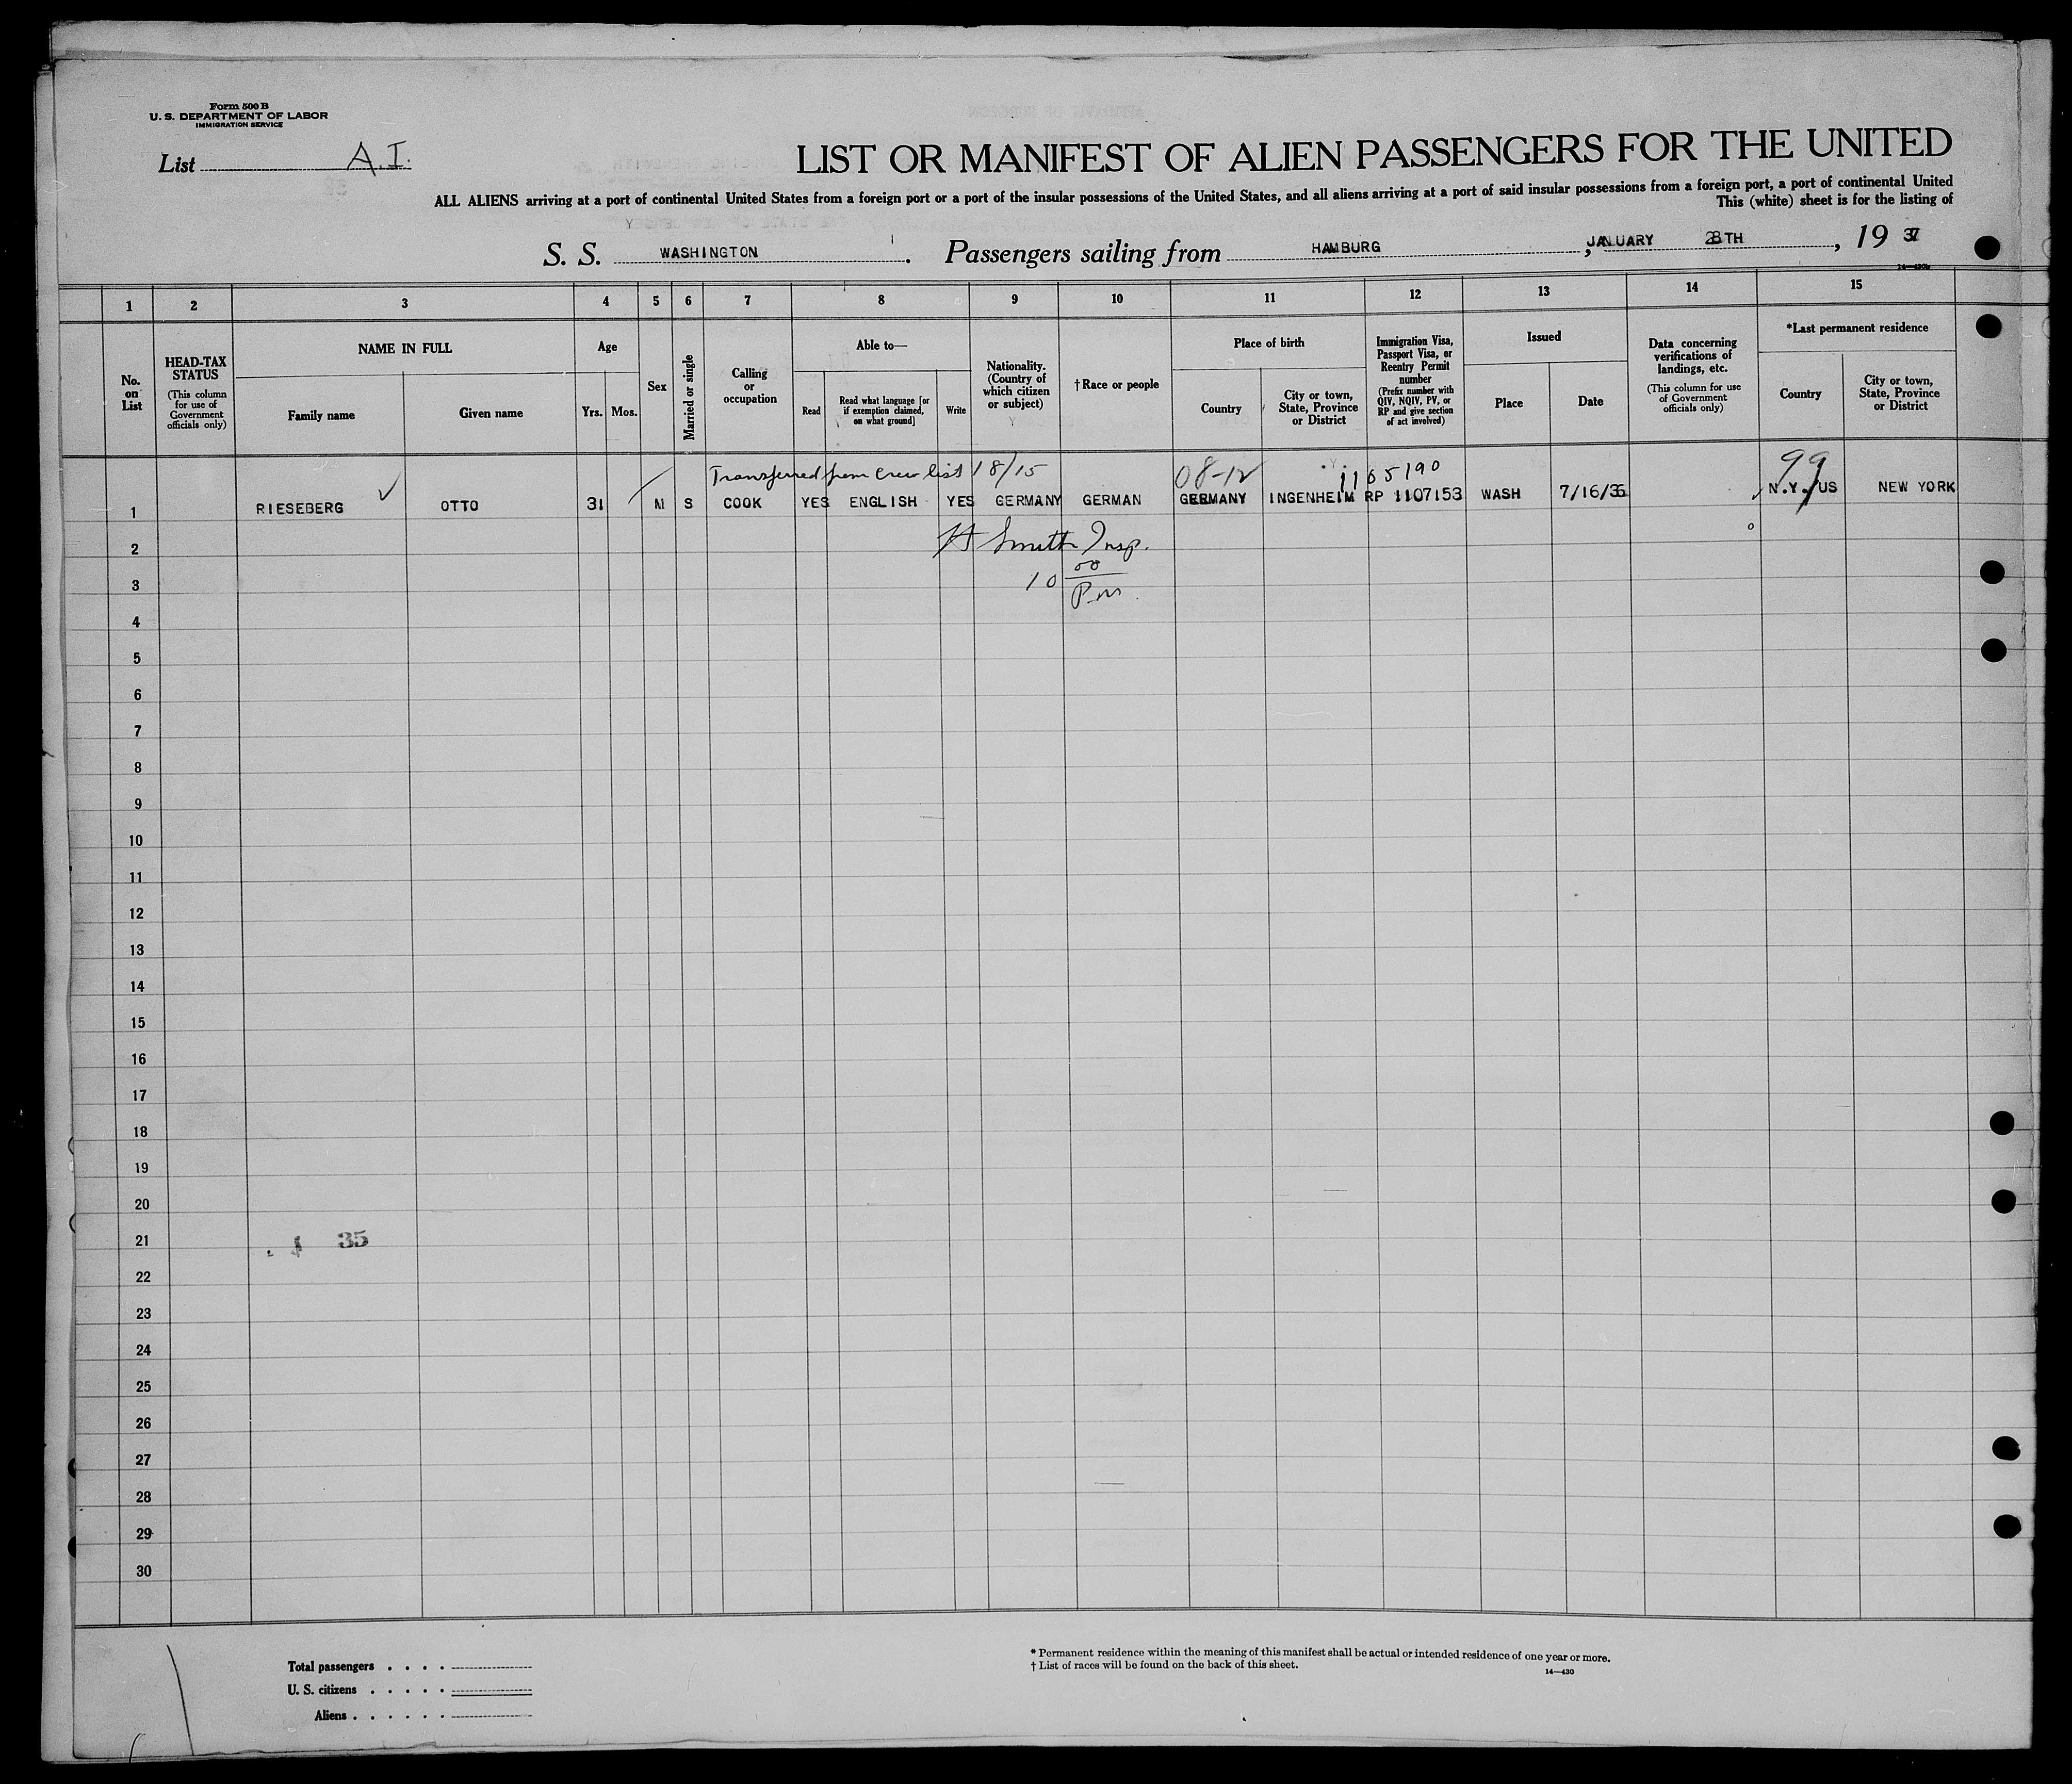 Form 500 B
U. S. DEPARTMENT OF LABOR
IMMIGRATION SERVICE
List A.I.
LIST OR MANIFEST OF ALIEN PASSENGERS FOR THE UNITED
ALL ALIENS arriving at a port of continental United States from a foreign port or a port of the insular possessions of the United States, and all aliens arriving at a port of said insular possessions from a foreign port, a port of continental United
This (white) sheet is for the listing of
S. S. WASHINGTON. Passengers sailing from HAMBURG, JANUARY 28TH, 19 37
1 2 3 4 5 6 7 8 9 10 11 12 13 14 15
No. on List
HEAD-TAX STATUS (This column for use of Government officials only)
NAME IN FULL
Family name
Given name
Age
Yrs. Mos.
Sex
Married or single
Calling or occupation
Able to—
Read
Read what language [or if exemption claimed, on what ground]
Write
Nationality. (Country of which citizen or subject)
†Race or people
Place of birth
Country
City or town, State, Province or District
Immigration Visa, Passport Visa, or Reentry Permit number (Prefix number with QIV, NQIV, PV, or RP and give section of act involved)
Issued
Place
Date
Data concerning verifications of landings, etc. (This column for use of Government officials only)
*Last permanent residence
Country
City or town, State, Province or District
Transferred from Crew list 18/15 08-12 1165190 99
1 RIESEBERG OTTO 31 M S COOK YES ENGLISH YES GERMANY GERMAN GERMANY INGENHEIM RP 1107153 WASH 7/16/36 N.Y. US NEW YORK
2 Smith Insp.
3 10 00 Pm
4
5
6
7
8
9
10
11
12
13
14
15
16
17
18
19
20
21 35
22
23
24
25
26
27
28
29
30
Total passengers . . . .
U. S. citizens . . . . .
Aliens . . . . . .
* Permanent residence within the meaning of this manifest shall be actual or intended residence of one year or more.
† List of races will be found on the back of this sheet.
14—430